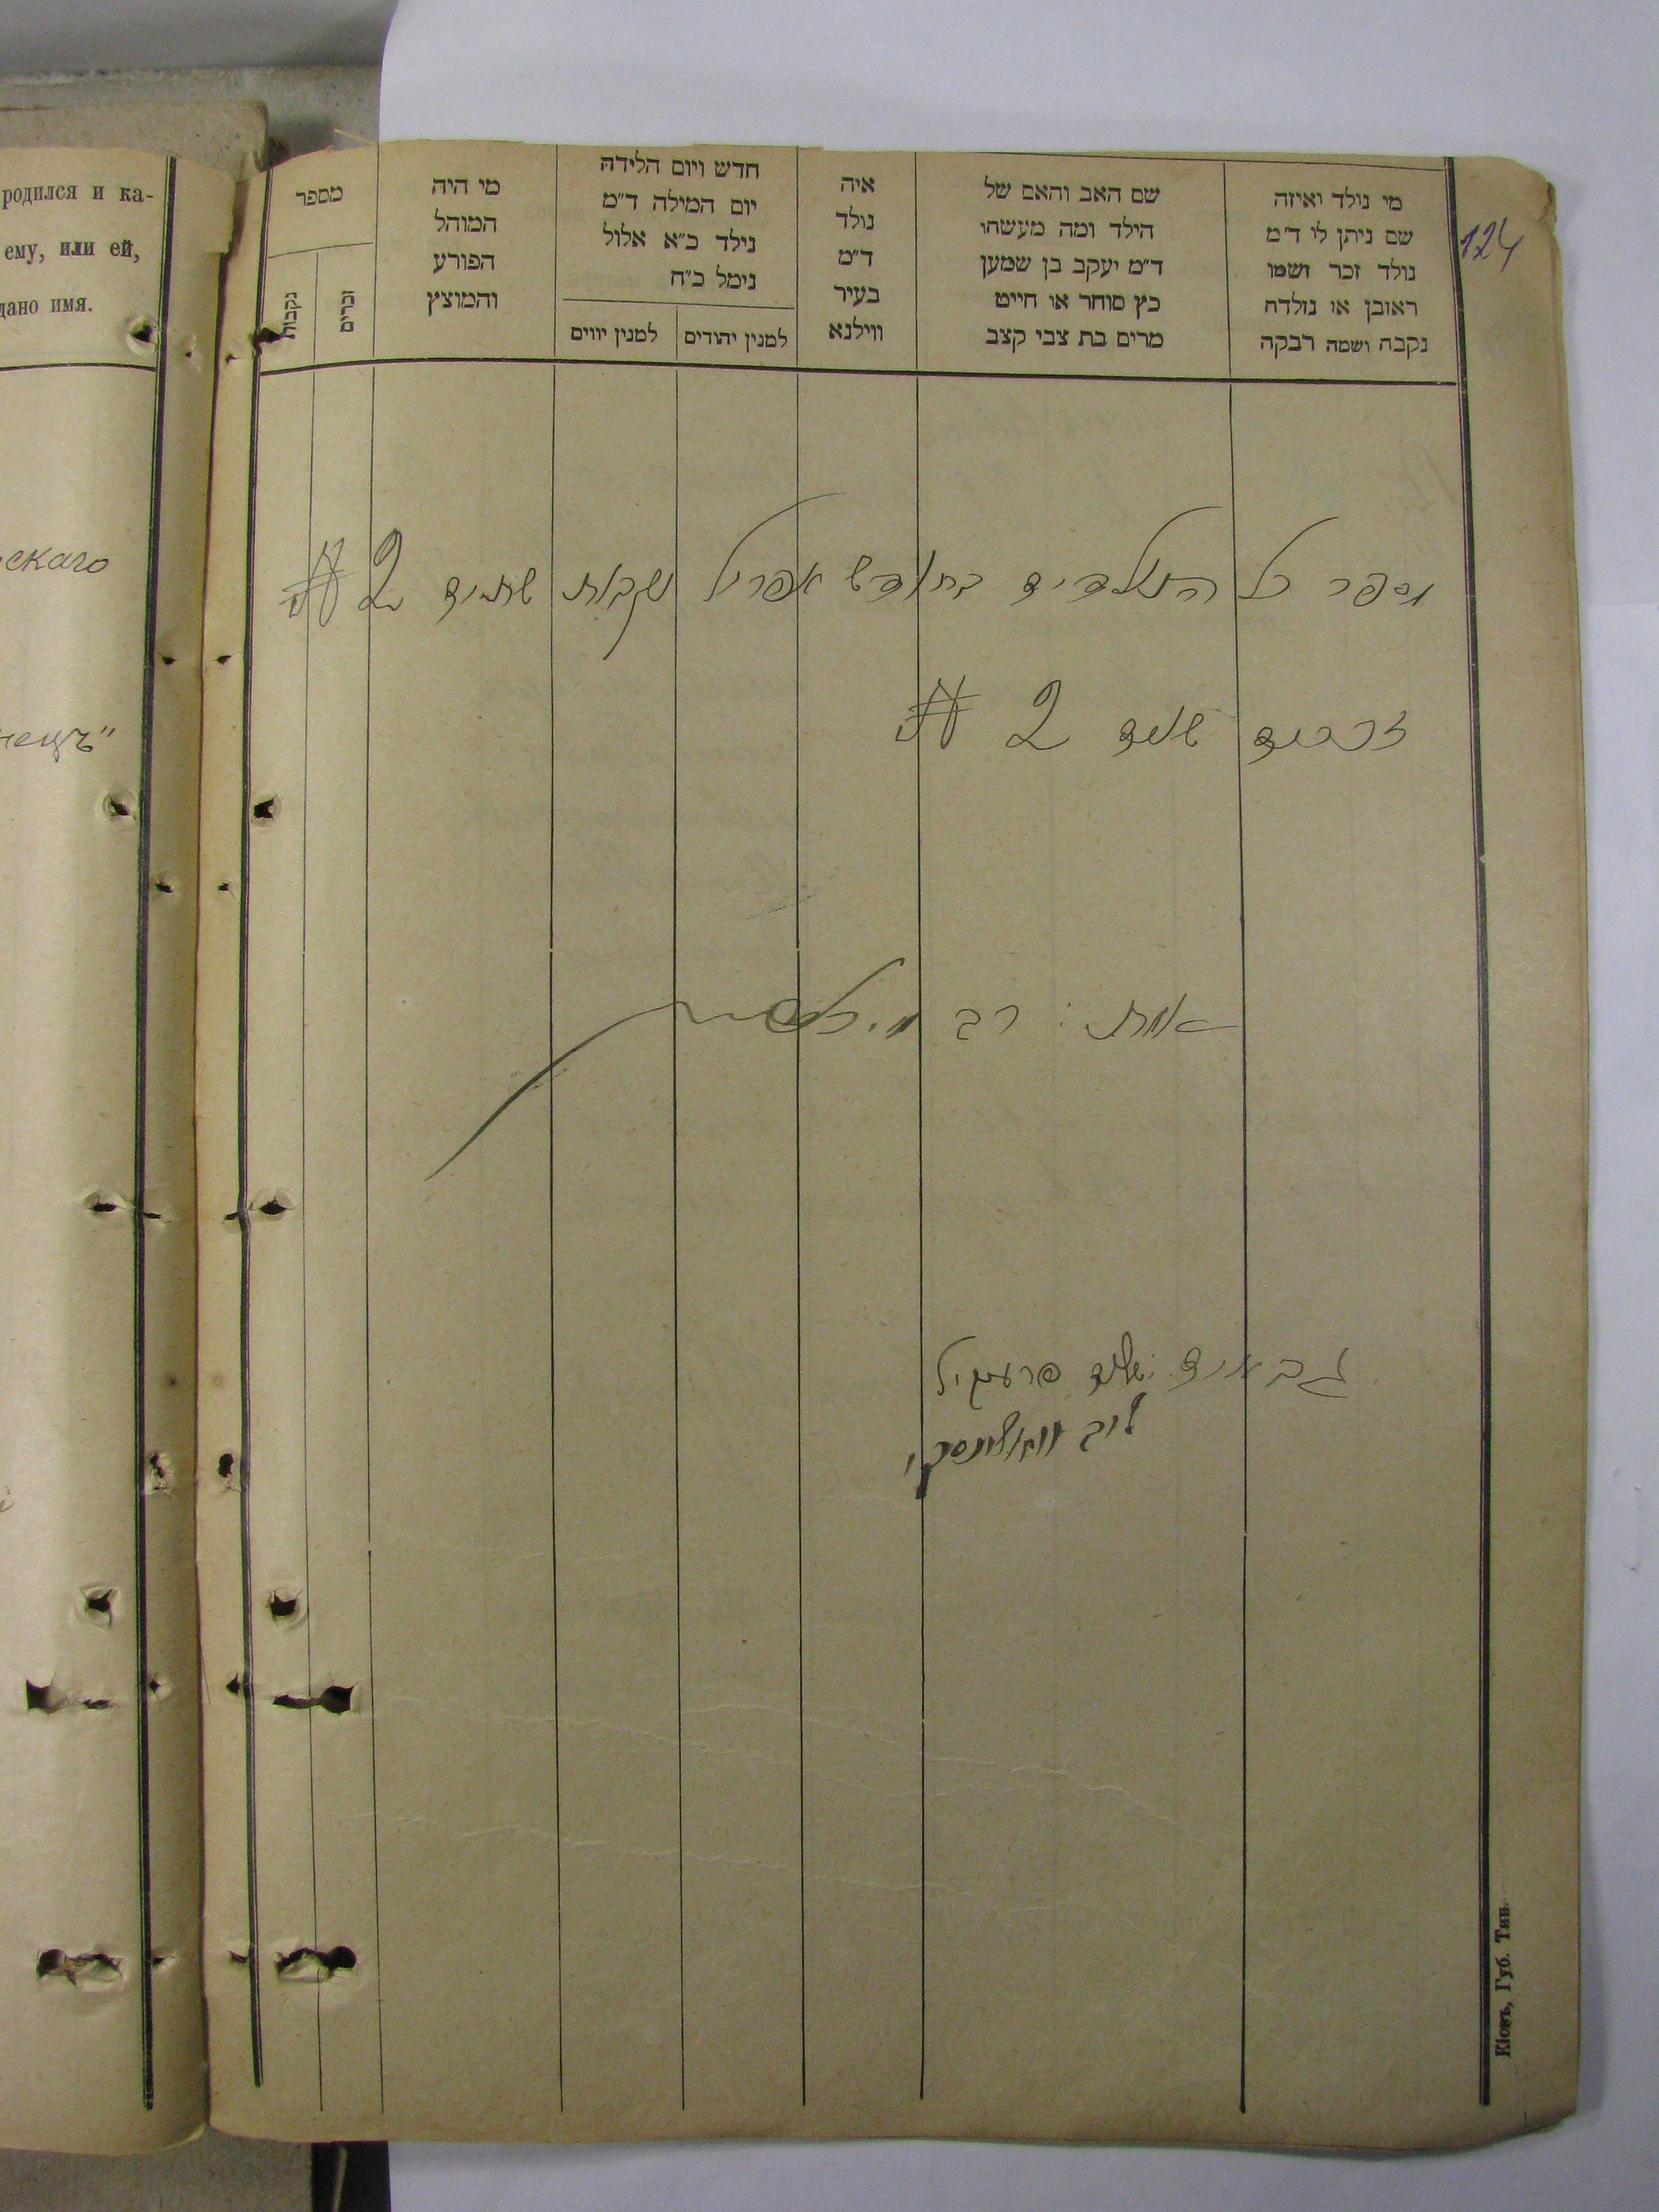 124
מי נולד ואיזה
שם ניתן לו ד״מ
נולד זכר ושמו
ראובן או נולדה
נקבה ושמה רבקה
שם האב והאם של
הילד ומה מעשהו
ד״מ יעקב בן שמען
כץ סוחר או חייט
מרים בת צבי קצב
איה
נולד
ד״מ
בעיר
ווילנא
חדש ויום הלידה
יום המילה ד״מ
נילד כ״א אלול
נימל כ״ח
למנין יהודים
למנין יווים
מי היה
המוהל
הפורע
והמוצץ
מספר
זכרים
נקבות
מספר כל הנולדים בחודש אפריל נקבות שתים 2 #
זכרים שנים 2 #
אמת : רב
גבאים
ליב
Кіовъ, Губ. Тип.
родился и ка-
ему, или ей,
дано имя.
скаго
нецъ"